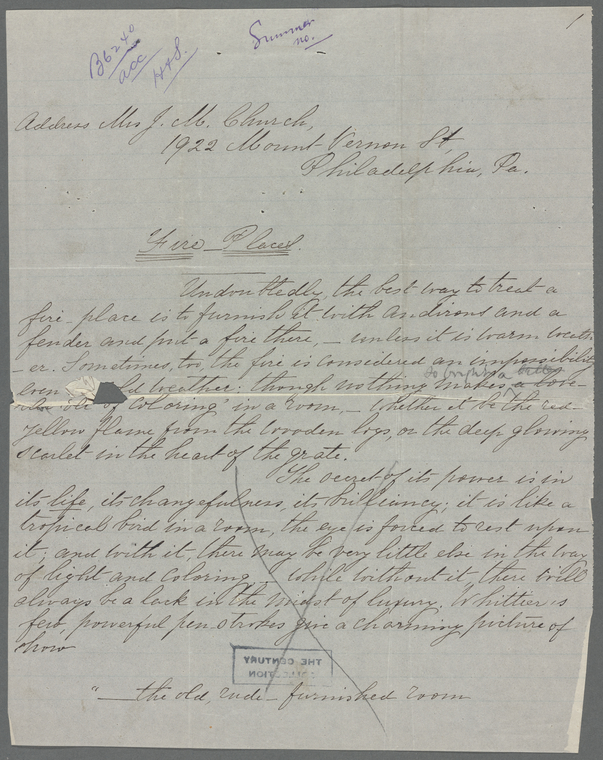 1
B6240
acc
H&S.
Summer
no.
Address Mrs J. M. Church,
1922 Mount Vernon St,
Philadelphia, Pa.
Fire Places.
Undoubtedly, the best way to treat a
fire-place is to furnish it with andirons and a
fender and put a fire there, — unless it is warm weath
-er. Sometimes, too, the fire is considered an impossibility
so bright a
even weather: though nothing makes a
of "coloring" in a room, — whether it be the red-
yellow flame from the wooden logs, or the deep glowing
scarlet in the heart of the grate.
The secret of its power is in
its life, its changefulness, its brilliancy; it is like a
tropical bird in a room, the eye is forced to rest upon
it; and with it, there may be very little else in the way
of light and coloring, while without it, there will
always be a lack in the midst of luxury. Whittier's
few, powerful pen strokes give a charming picture of
show
THE CENTURY
"—the old, rude-furnished room